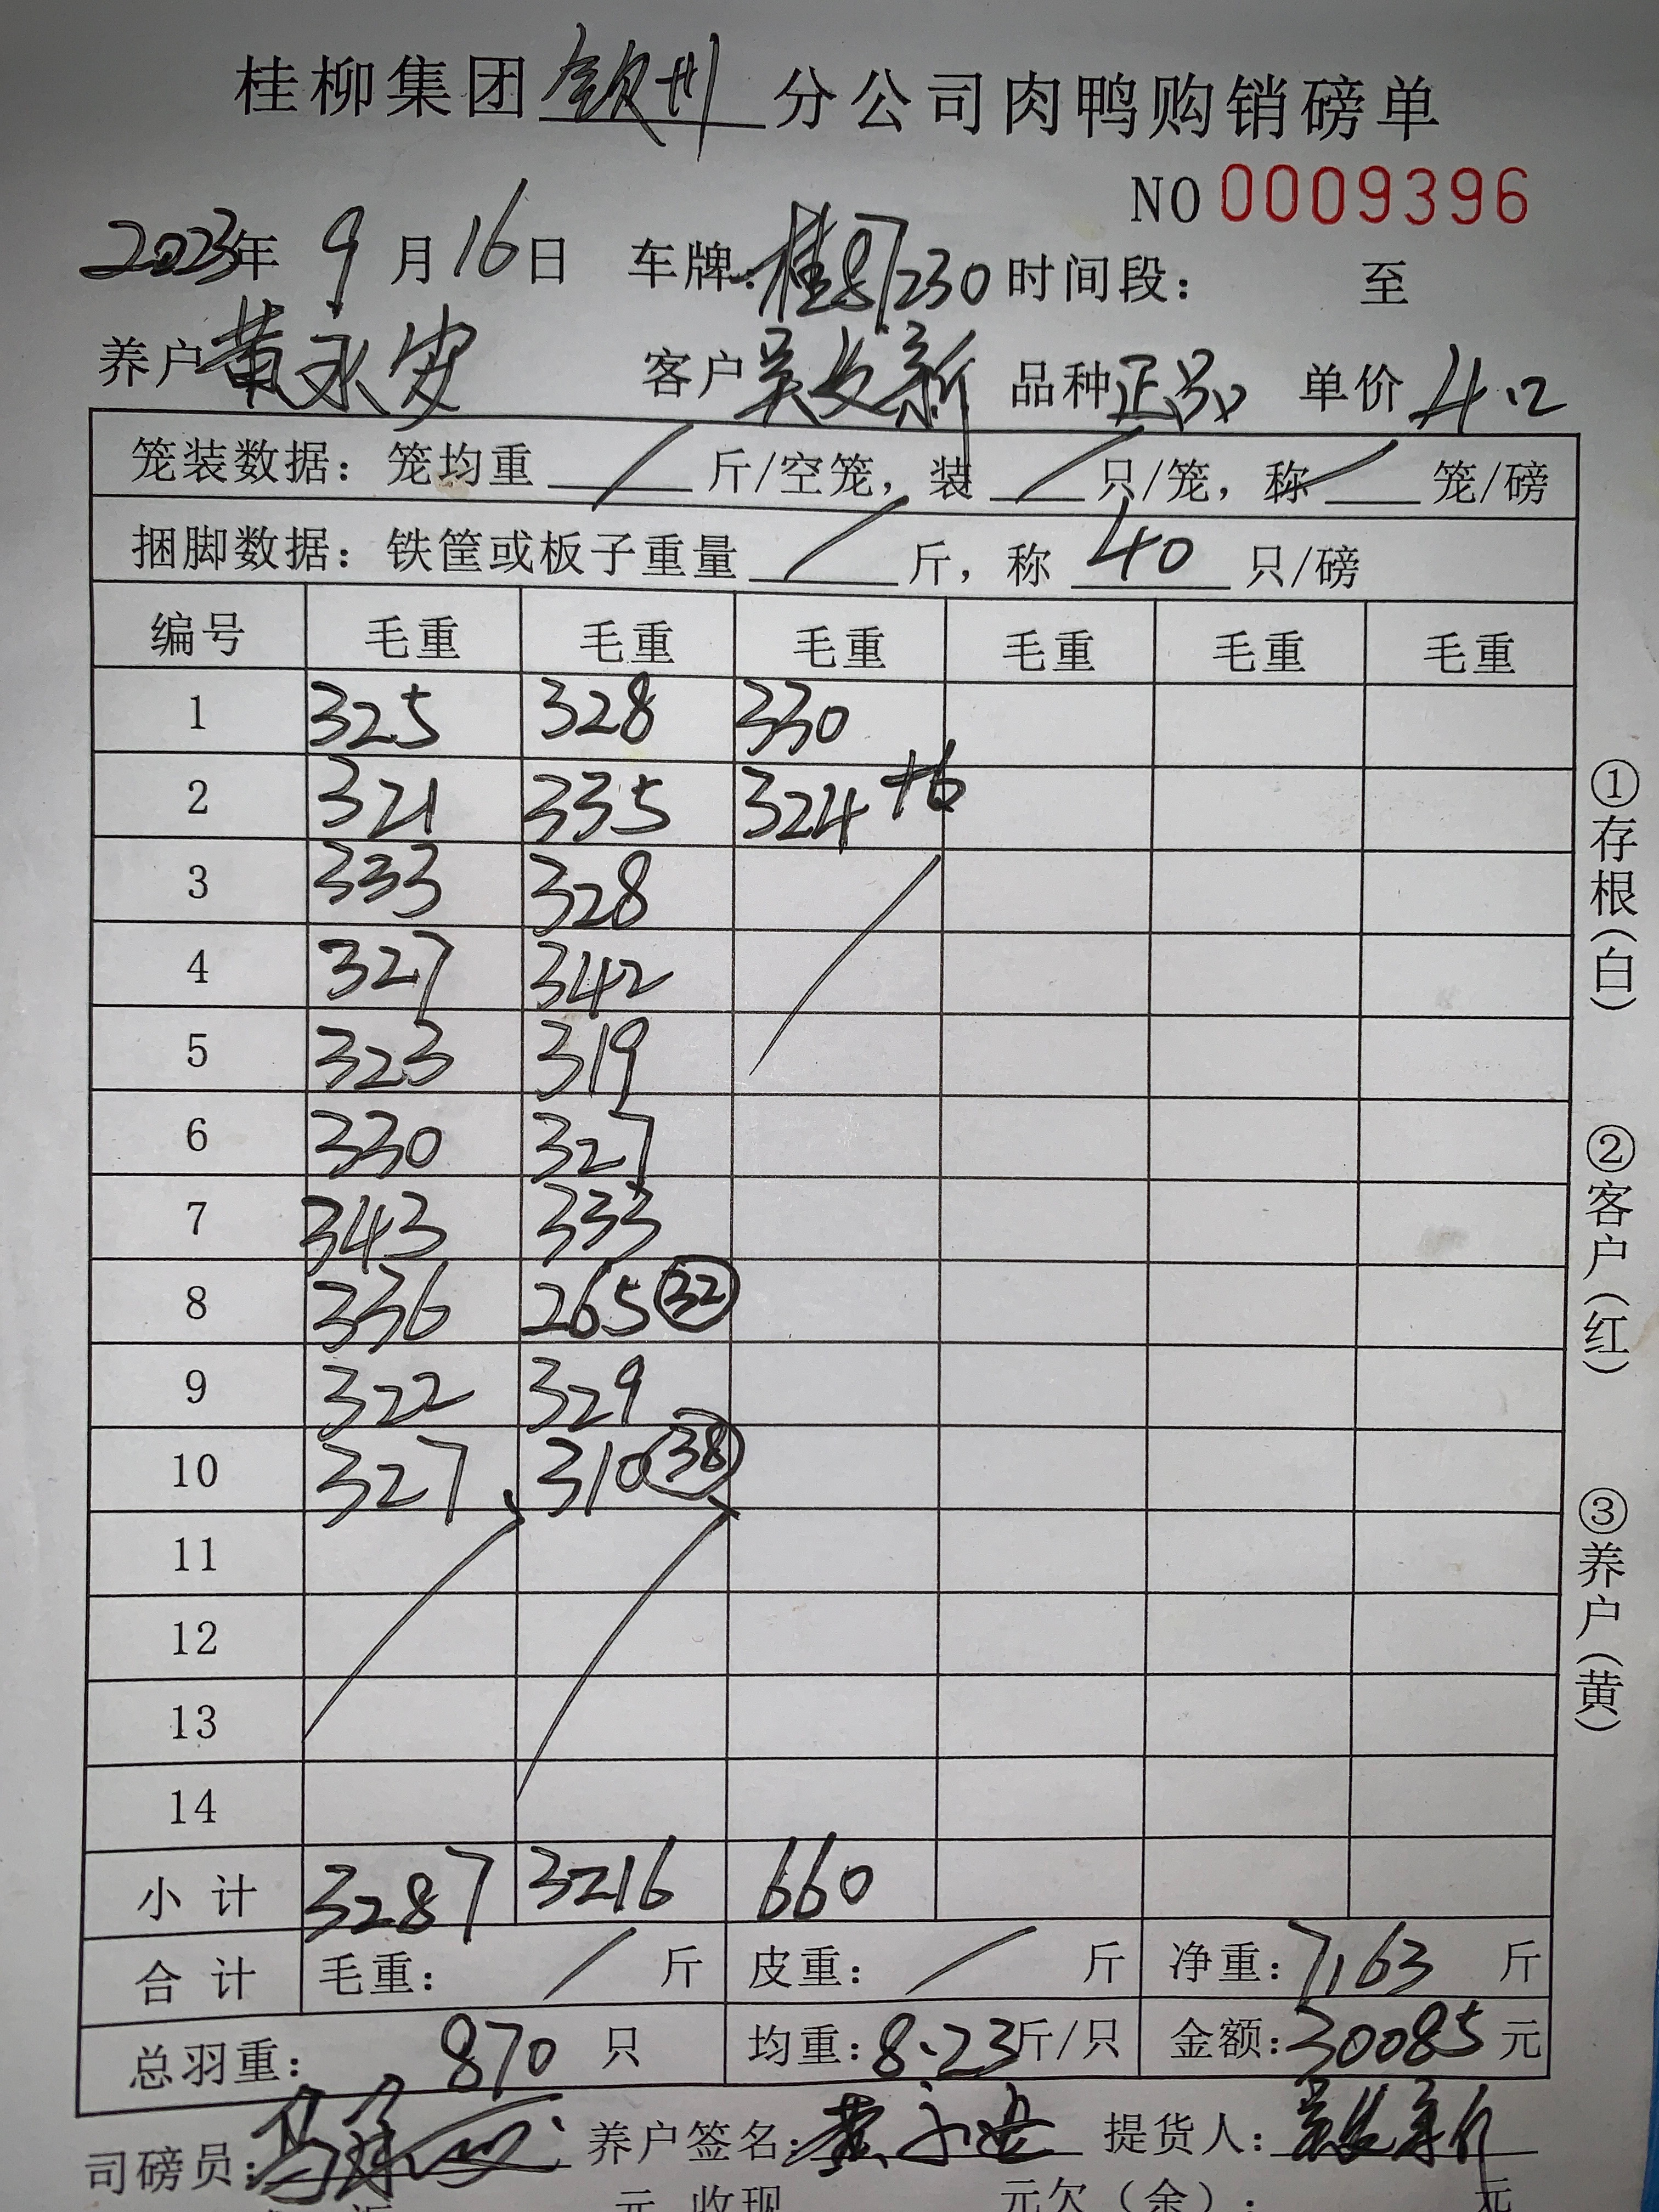 桂柳集团钦州分公司肉鸭购销磅单
NO 0009396
2023年 9月16日 车牌:桂87230 时间段: 至
养户黄永安 客户吴发新 品种正品 单价4.2
笼装数据:笼均重 / 斤/空笼,装 / 只/笼,称 / 笼/磅
捆脚数据:铁筐或板子重量 / 斤,称 40 只/磅
编号 毛重 毛重 毛重 毛重 毛重 毛重
1 325 328 330
2 321 335 324+6
3 333 328
4 327 342
5 323 319
6 330 327
7 343 333
8 336 265 ㉜
9 322 329
10 327 310 ㊳
11
12
13
14
小计 3287 3216 660
合计 毛重: / 斤 皮重: / 斤 净重:7163 斤
总羽重: 870 只 均重:8.23斤/只 金额:30085元
司磅员: 养户签名:黄永安 提货人:吴发新
元 收现 元欠(余): 元
①存根(白)
②客户(红)
③养户(黄)